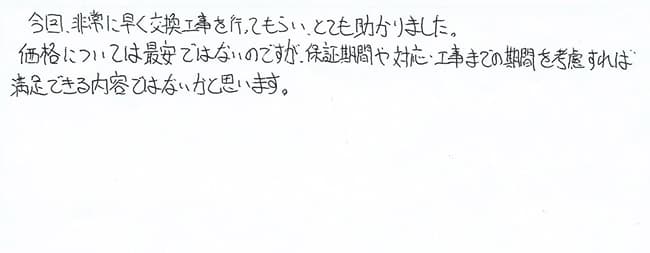 今回、非常に早く交換工事を行ってもらい、とても助かりました。
価格については最安ではないのですが、保証期間や対応・工事までの期間を考慮すれば
満足できる内容ではないかと思います。